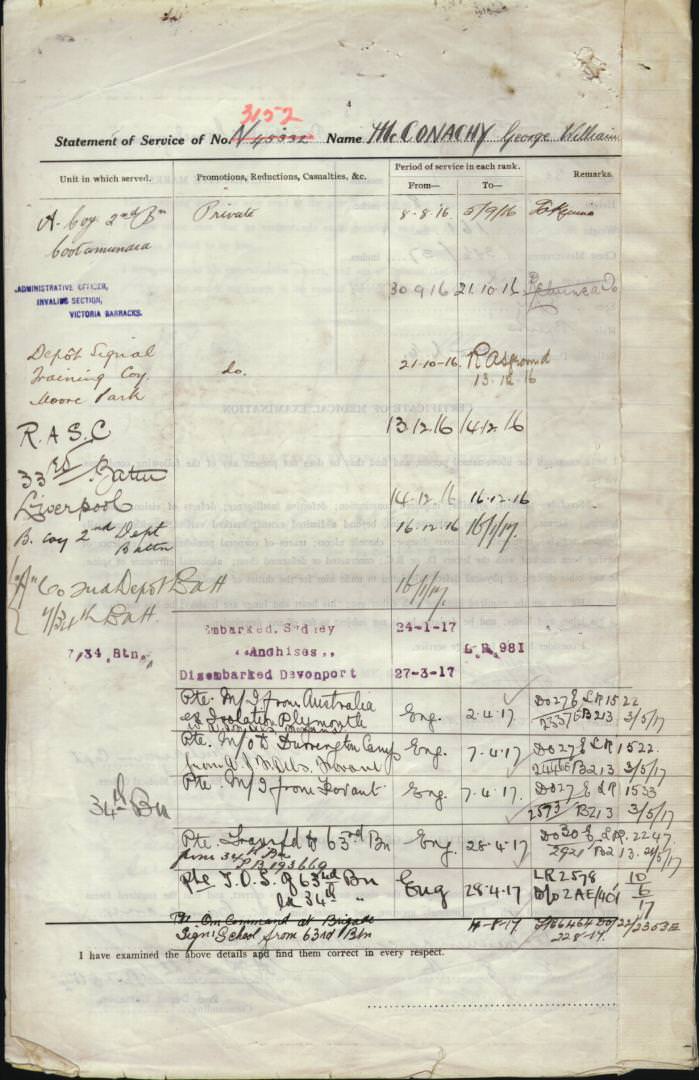 4
3152
Statement of Service of No. N45332 Name McCONACHY George William
Unit in which served.
Promotions, Reductions, Casualties, &c.
Period of service in each rank.
From—
To—
Remarks.
A. Coy 2nd Bn
Cootamundra
Private
8-8-16
5/9/16
ADMINISTRATIVE OFFICER,
INVALIDS SECTION,
VICTORIA BARRACKS.
30 9 16
21.10.16
Depôt Signal
Training Coy.
Moore Park
do.
21-10-16.
13.12.16
R.A.S.C
13.12.16
14.12.16
33rd Battn
Liverpool
14.12.16
16.12.16
B. Coy 2nd Dept
Battn
16.12.16
16/1/17.
"A" Co 2nd Depot Batt
16/1/17.
7/34th Batt.
Embarked, Sydney
24-1-17
7/34 Btn.
"Anchises"
L.R. 981
Disembarked Devonport
27-3-17
Pte. M/I from Australia
ex Isolation Plymouth
Eng.
2.4.17
DO27 & LR 1522
23376 B213 3/5/17
Pte. M/O to Durrington Camp
Eng.
7.4.17.
DO27 & LR 1522.
24466 B213 3/5/17
Pte. M/I from Fovant
34th Bn
Eng.
7.4.17.
DO27 & LR 1533
2593 B213 3/5/17
Pte Transfd to 63rd Bn
from 34th Bn
Eng.
28.4.17
DO30 & LR. 2247
2921 B213. 24/5/17
Pte T.O.S. of 63rd Bn
ex 34th "
Eng
28.4.17
LR 2578
10/6/17
Pte On Command at Brigade
Sign: School from 63rd Btn
22.8.17.
I have examined the above details and find them correct in every respect.